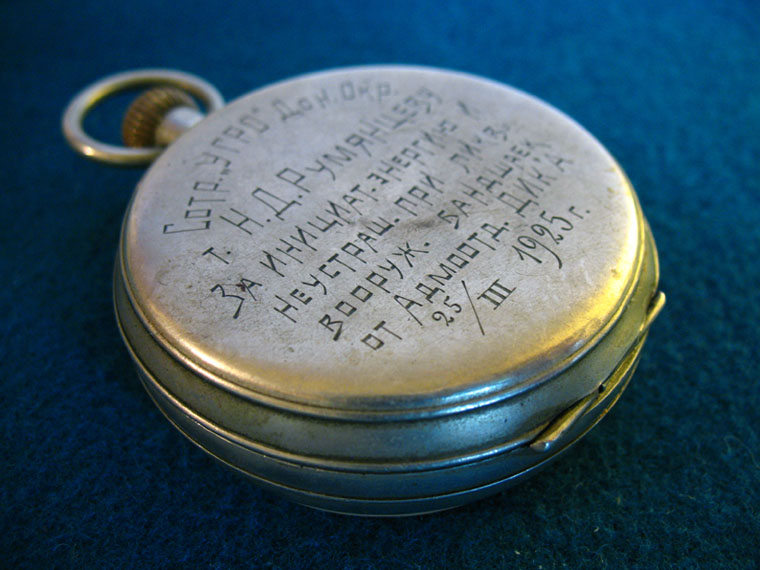 Сотр. „УГРО" Дон. Окр.
т. Н. Д. Румянцеву
За инициат. энергию и
неустраш. при ликв.
вооруж. бандшаек
от Адмоотд. ДИК'А
25/III 1925 г.